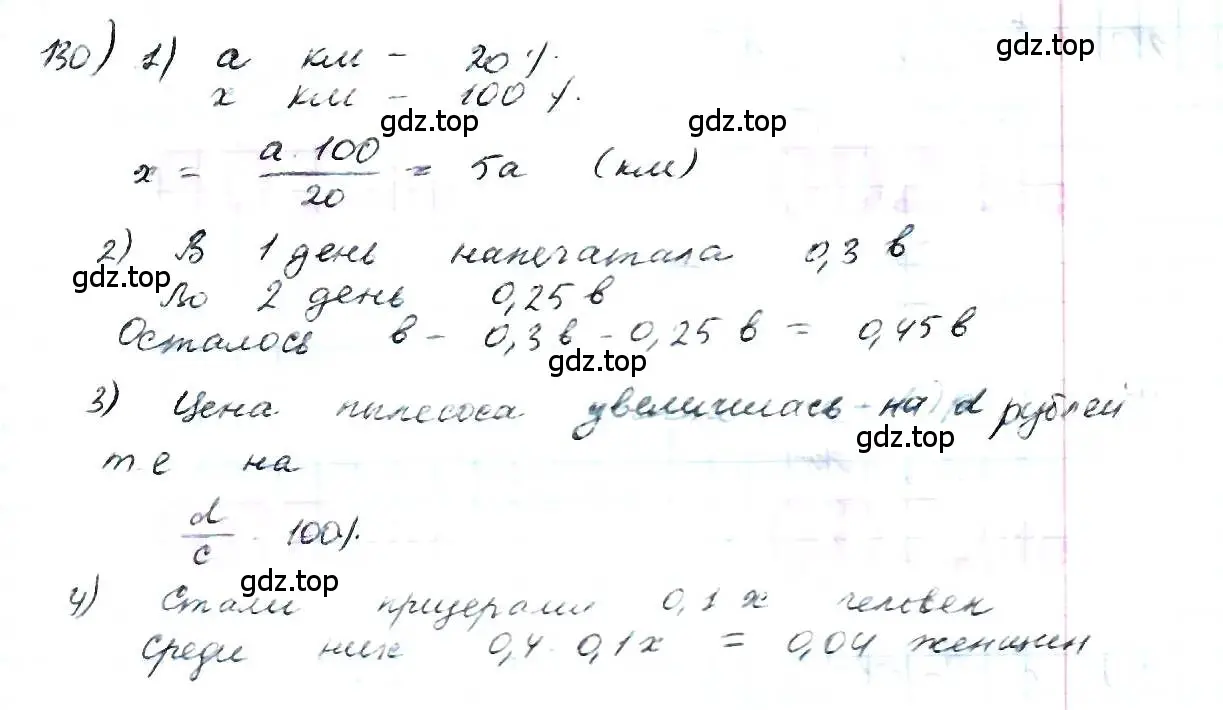 130) 1) а км - 20%.
gdz.top
х км - 100%.
gdz.top gdz.top
х = а · 100 / 20 = 5а (км)
2) В 1 день напечатала 0,3 в
gdz.top
Во 2 день 0,25 в
Осталось в - 0,3 в - 0,25 в = 0,45 в
gdz.top
3) Цена пылесоса увеличилась на d рублей
gdz.top
т.е на
d / c · 100%.
gdz.top
4) Стали призерами 0,1 х человек
среди них 0,4 · 0,1 х = 0,04 женщин